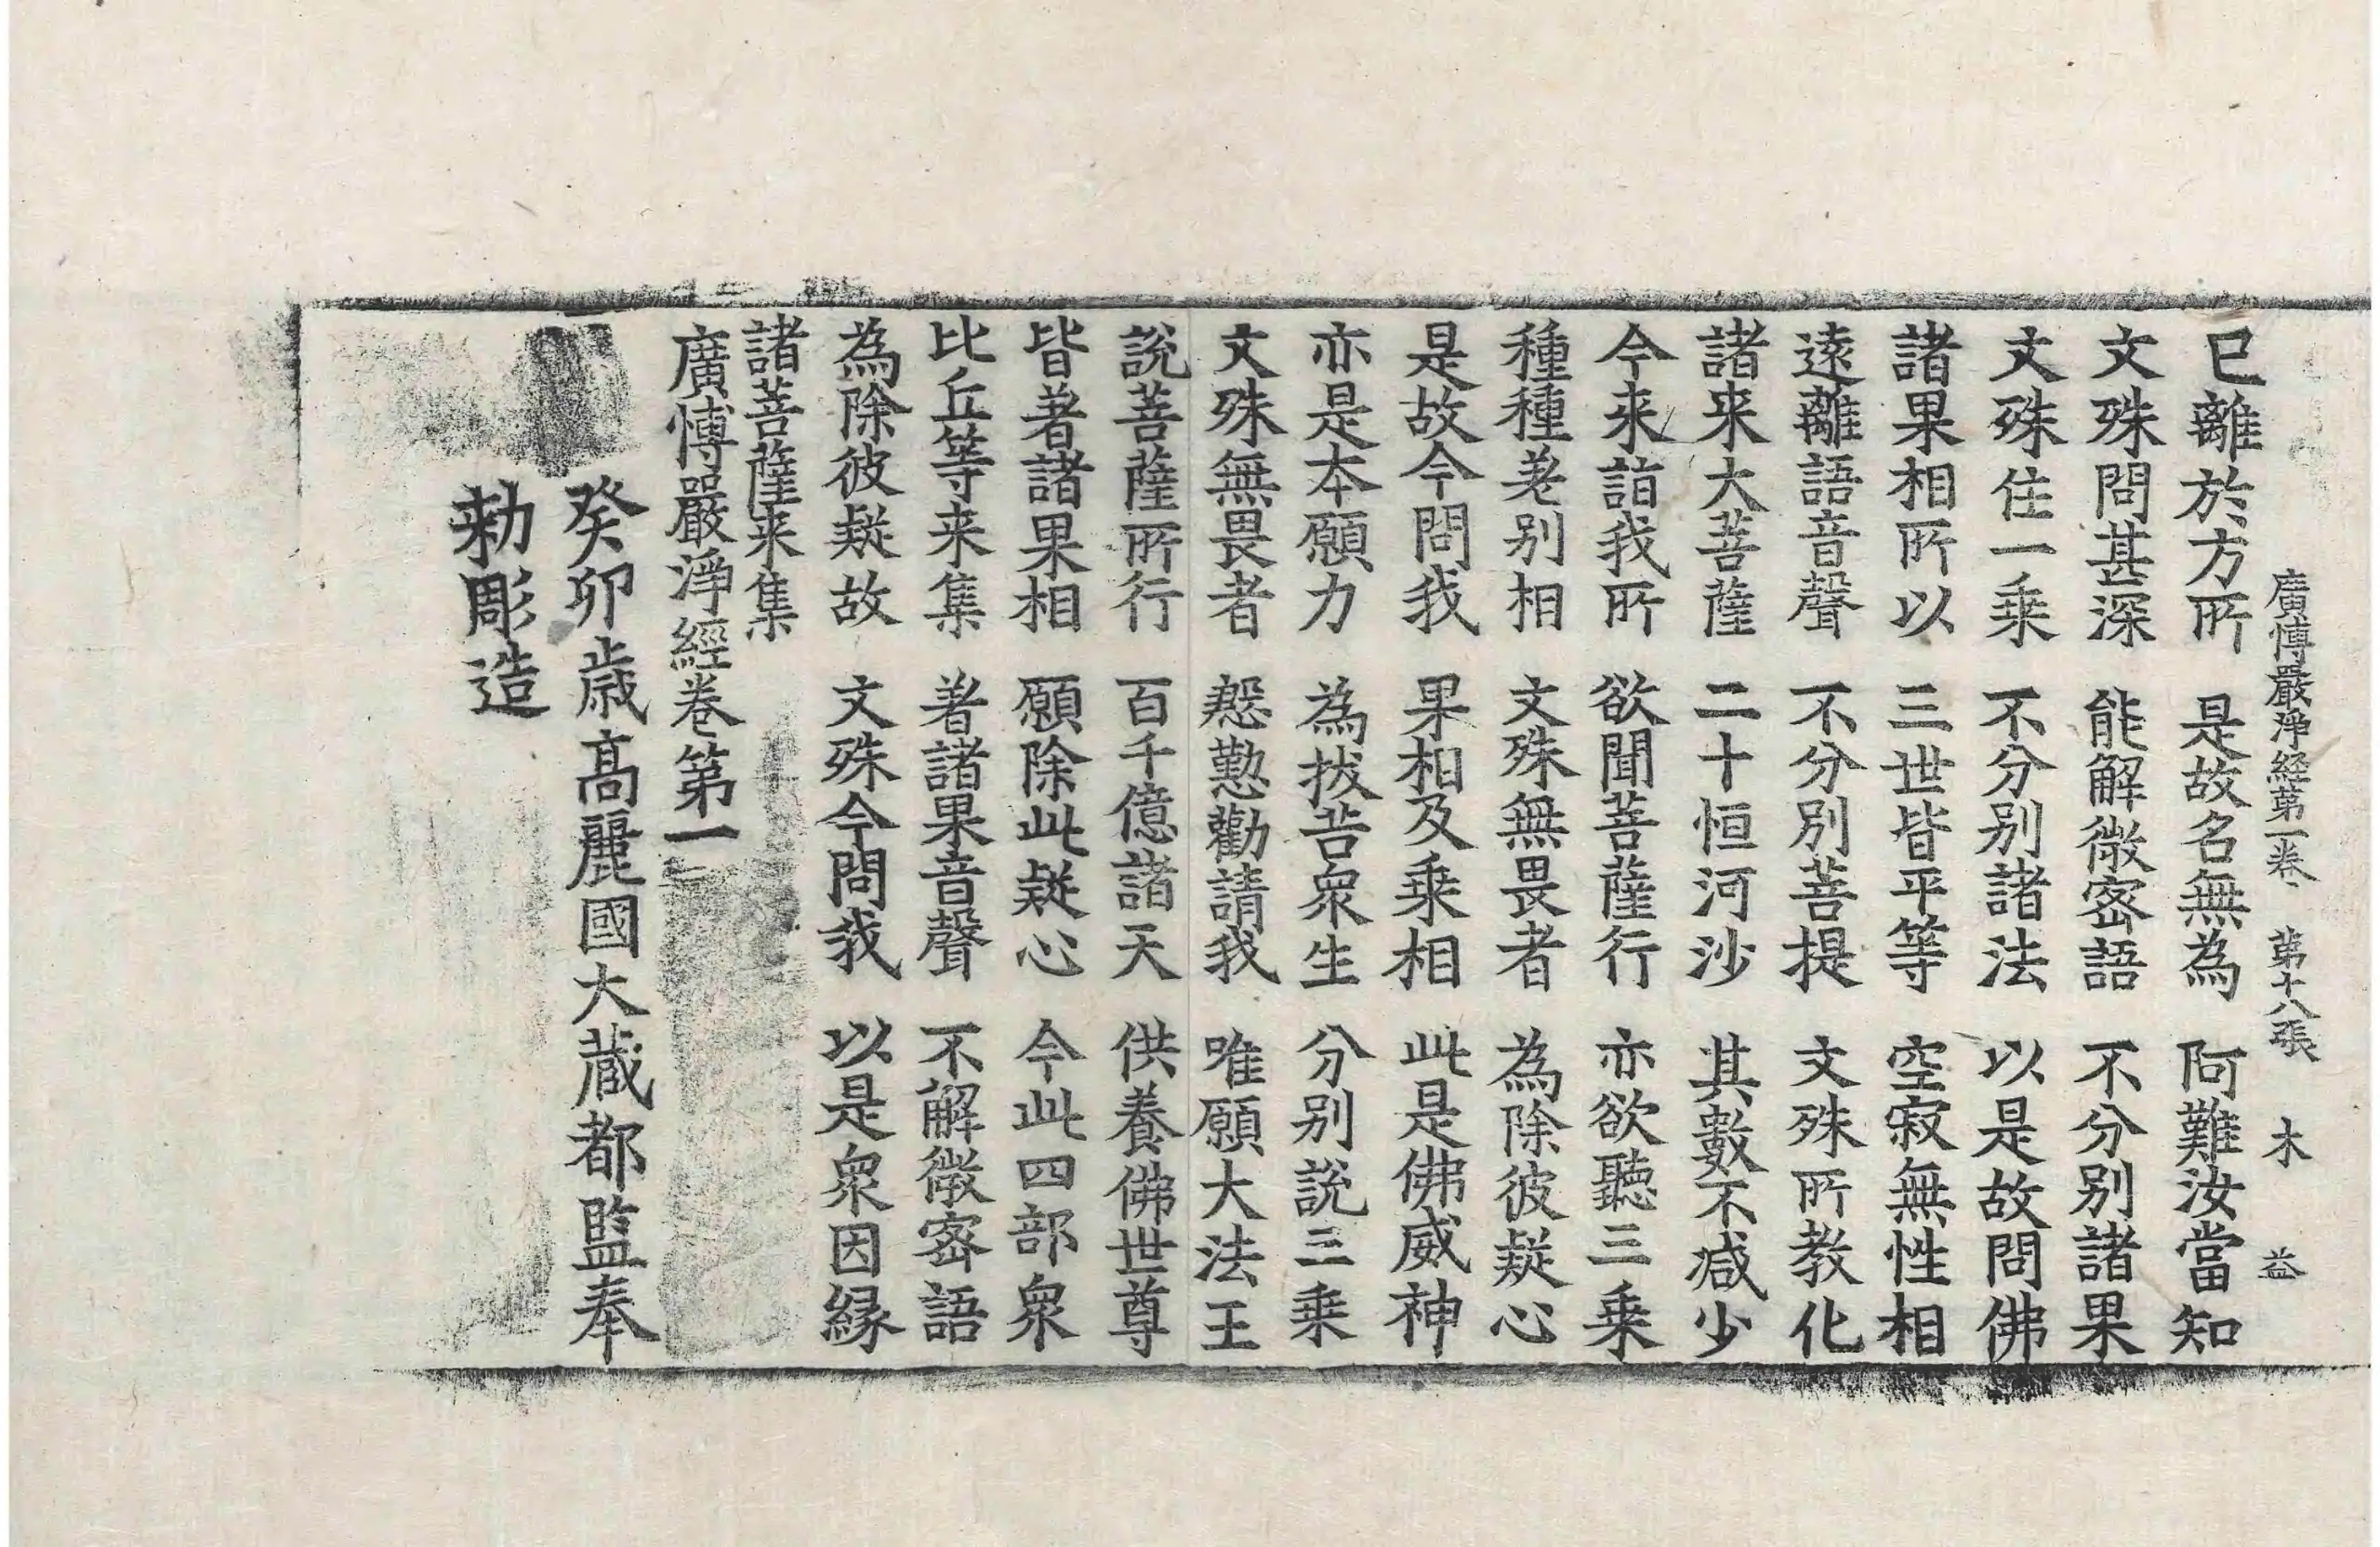 廣愽嚴淨経第一卷 第十八張 木 益
已離於方所 是故名無為 阿難汝當知
文殊問甚深 能解微密語 不分別諸果
文殊住一乗 不分別諸法 以是故問佛
諸果相所以 三世皆平等 空寂無性相
遠離語音聲 不分別菩提 文殊所教化
諸来大菩薩 二十恒河沙 其數不減少
今来詣我所 欲聞菩薩行 亦欲聽三乗
種種差別相 文殊無畏者 為除彼疑心
是故今問我 果相及乗相 此是佛威神
亦是本願力 為拔苦衆生 分別說三乗
文殊無畏者 慇懃勸請我 唯願大法王
說菩薩所行 百千億諸天 供養佛世尊
皆著諸果相 願除此疑心 今此四部衆
比丘等来集 著諸果音聲 不解微密語
為除彼疑故 文殊今問我 以是衆因縁
諸菩薩来集
廣愽嚴淨經卷第一
癸卯歲高麗國大藏都監奉
勑彫造